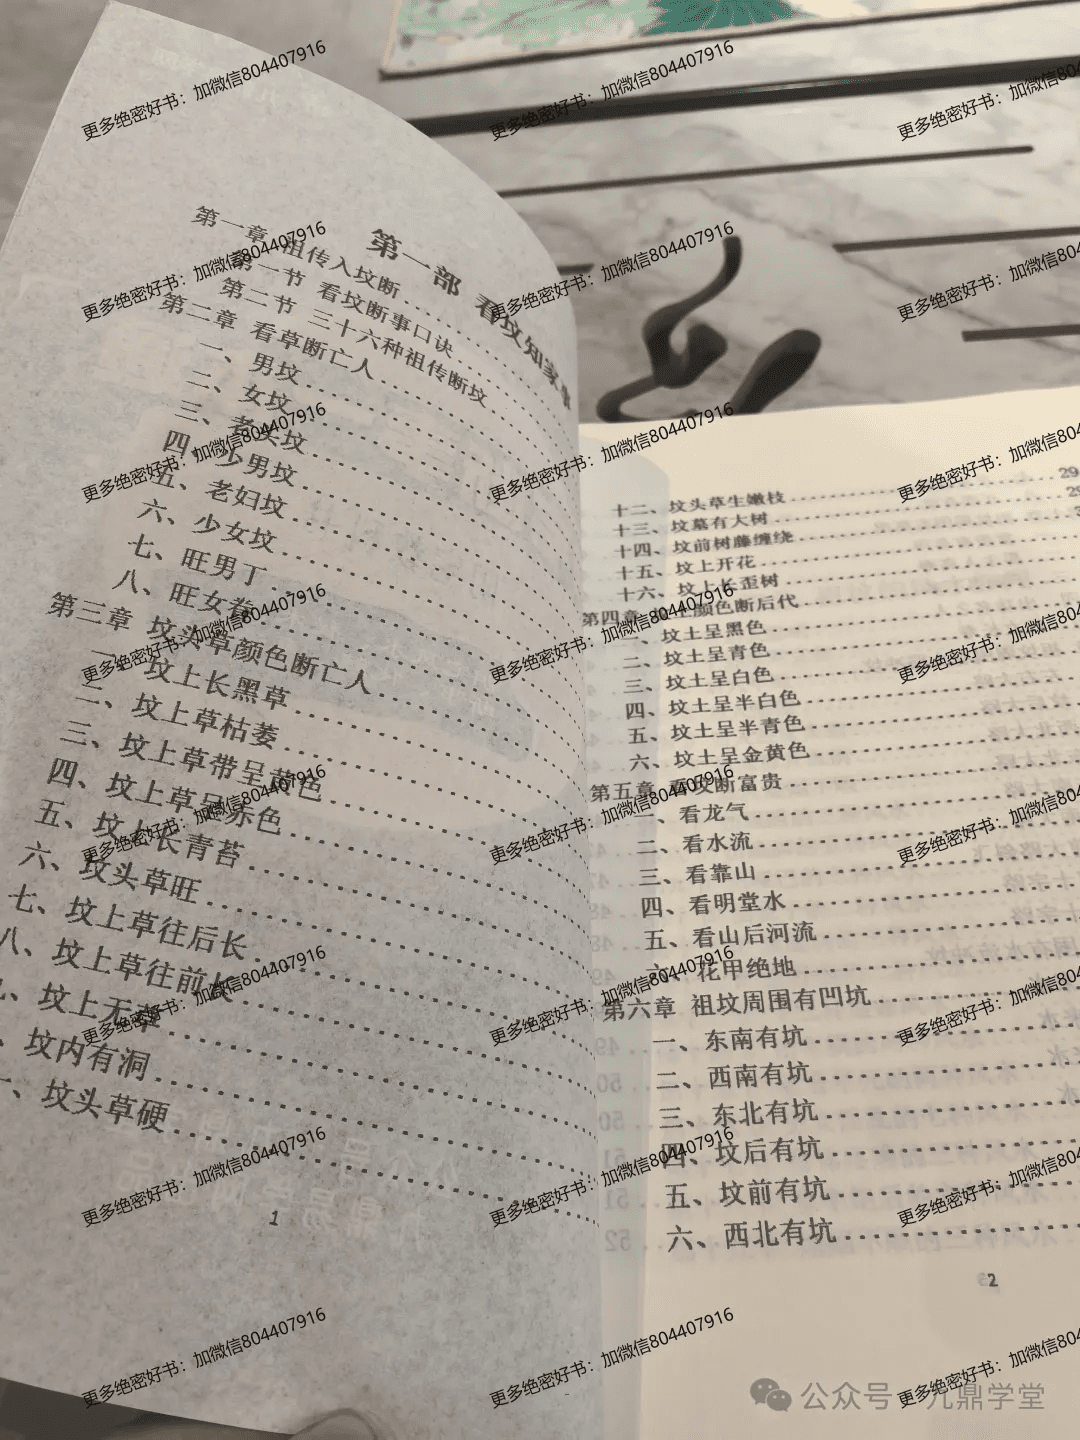 第一部 看坟知家事
第一章 祖传入坟断
第一节 看坟断事口诀
第二节 三十六种祖传断坟
第二章 看草断亡人
一、男坟
二、女坟
三、老头坟
四、少男坟
五、老妇坟
六、少女坟
七、旺男丁
八、旺女眷
第三章 坟头草颜色断亡人
一、坟上长黑草
二、坟上草枯萎
三、坟上草带呈黄色
四、坟上草呈赤色
五、坟上长青苔
六、坟头草旺
七、坟上草往后长
八、坟上草往前长
九、坟上无草
、坟内有洞
一、坟头草硬
1
十二、坟头草生嫩枝 29
十三、坟墓有大树 29
十四、坟前树藤缠绕 3
十五、坟上开花
十六、坟上长歪树
第四章 颜色断后代
一、坟土呈黑色
二、坟土呈青色
三、坟土呈白色
四、坟土呈半白色
五、坟土呈半青色
六、坟土呈金黄色
第五章 看坟断富贵
一、看龙气
二、看水流
三、看靠山
四、看明堂水
五、看山后河流
六、花甲绝地
第六章 祖坟周围有凹坑
一、东南有坑
二、西南有坑
三、东北有坑
四、坟后有坑
五、坟前有坑
六、西北有坑
2
更多绝密好书：加微信804407916
公众号 · 九鼎学堂